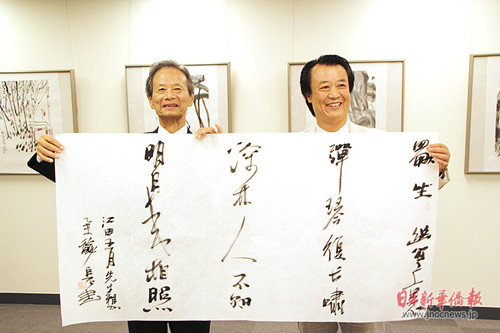 獨坐幽篁里
彈琴復長嘯
深林人不知
明月来相照
江田五月先生
日本新華僑報
www.jnocnews.jp